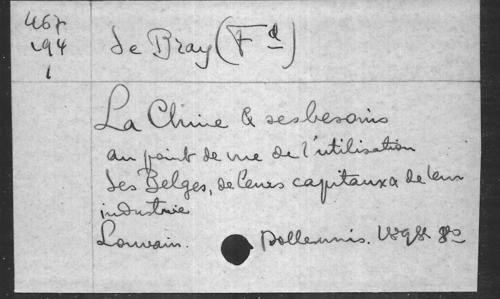 467
194
1
de Bray (Fd)
La Chine & ses besoins
au point de vue de l'utilisation
des Belges, de leurs capitaux & de leur
industrie
Louvain. Polleunis. 1898 8o